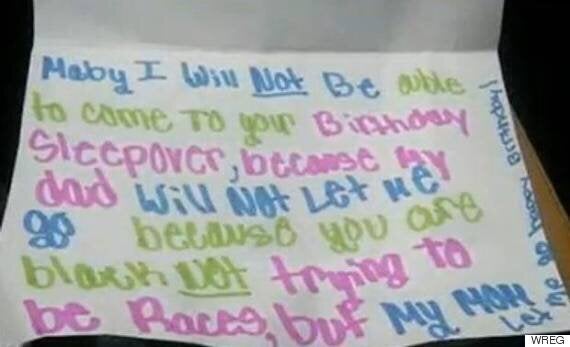 Maby I Will Not Be able
to come To your Birthday
Sleepover, because my
dad Will Not Let Me
go because you are
black Not trying to
be Races, but My Mom
Let me go
Birthday!
WREG